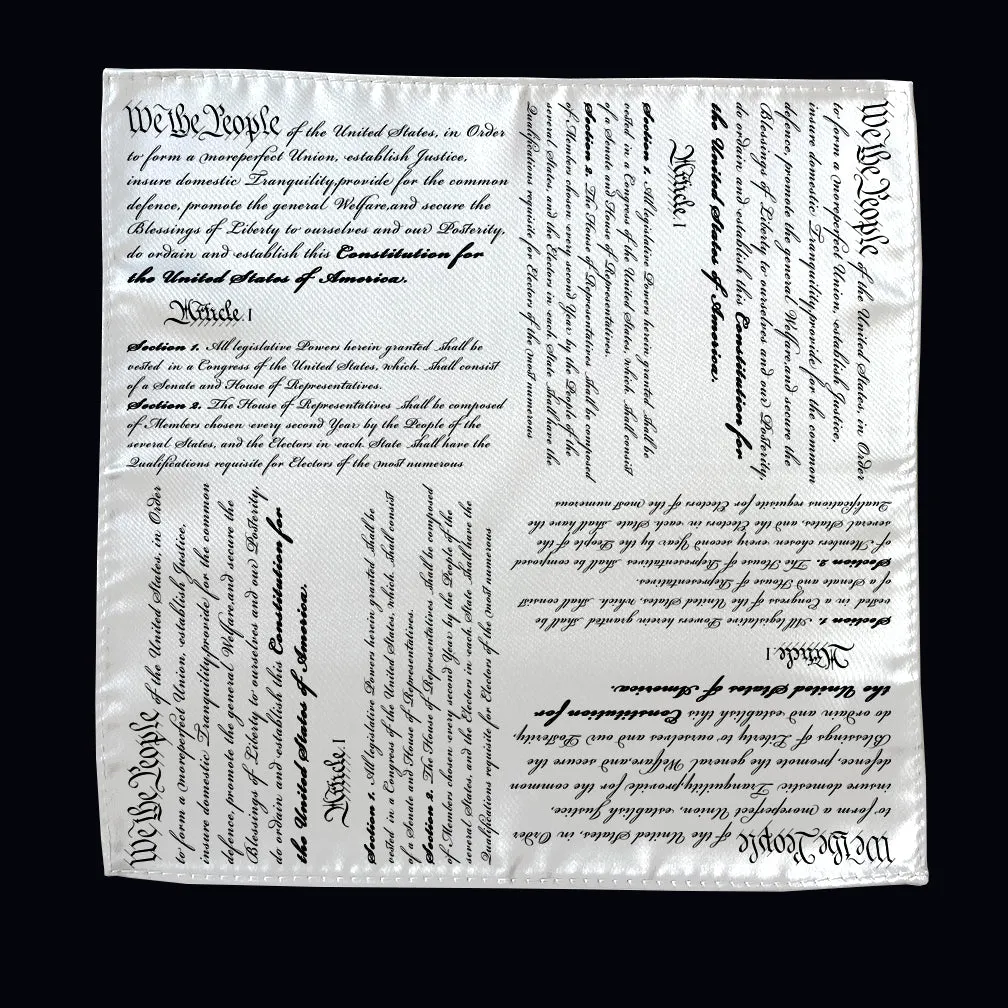 We the People of the United States, in Order
to form a moreperfect Union, establish Justice,
insure domestic Tranquility,provide for the common
defence, promote the general Welfare,and secure the
Blessings of Liberty to ourselves and our Posterity,
do ordain and establish this Constitution for
the United States of America.
Article. I
Section 1. All legislative Powers herein granted shall be
vested in a Congress of the United States, which shall consist
of a Senate and House of Representatives.
Section 2. The House of Representatives shall be composed
of Members chosen every second Year by the People of the
several States, and the Electors in each State shall have the
Qualifications requisite for Electors of the most numerous
We the People of the United States, in Order
to form a moreperfect Union, establish Justice,
insure domestic Tranquility,provide for the common
defence, promote the general Welfare,and secure the
Blessings of Liberty to ourselves and our Posterity,
do ordain and establish this Constitution for
the United States of America.
Article. I
Section 1. All legislative Powers herein granted shall be
vested in a Congress of the United States, which shall consist
of a Senate and House of Representatives.
Section 2. The House of Representatives shall be composed
of Members chosen every second Year by the People of the
several States, and the Electors in each State shall have the
Qualifications requisite for Electors of the most numerous
We the People of the United States, in Order
to form a moreperfect Union, establish Justice,
insure domestic Tranquility,provide for the common
defence, promote the general Welfare,and secure the
Blessings of Liberty to ourselves and our Posterity,
do ordain and establish this Constitution for
the United States of America.
Article. I
Section 1. All legislative Powers herein granted shall be
vested in a Congress of the United States, which shall consist
of a Senate and House of Representatives.
Section 2. The House of Representatives shall be composed
of Members chosen every second Year by the People of the
several States, and the Electors in each State shall have the
Qualifications requisite for Electors of the most numerous
We the People of the United States, in Order
to form a moreperfect Union, establish Justice,
insure domestic Tranquility,provide for the common
defence, promote the general Welfare,and secure the
Blessings of Liberty to ourselves and our Posterity,
do ordain and establish this Constitution for
the United States of America.
Article. I
Section 1. All legislative Powers herein granted shall be
vested in a Congress of the United States, which shall consist
of a Senate and House of Representatives.
Section 2. The House of Representatives shall be composed
of Members chosen every second Year by the People of the
several States, and the Electors in each State shall have the
Qualifications requisite for Electors of the most numerous